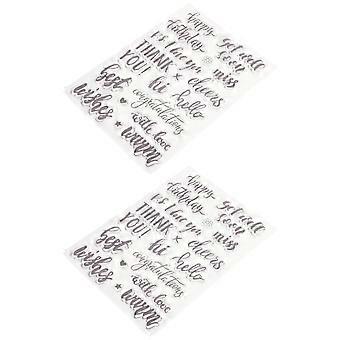 happy
birthday
get well
soon
P.S. I love you
miss
THANK
YOU!
cheers
hi
hello
best
wishes
congratulations
with love
warm
happy
birthday
get well
soon
P.S. I love you
miss
THANK
YOU!
cheers
hi
hello
best
wishes
congratulations
with love
warm